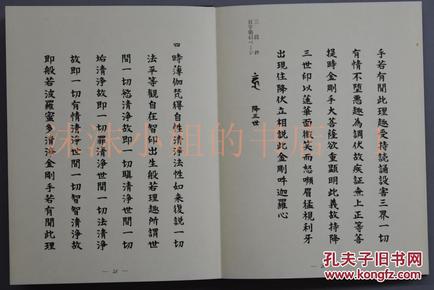 手若有聞此理趣受持讀誦設害三界一切
有情不墮惡趣為調伏故疾證無上正等菩
提時金剛手大菩薩欲重顯明此義故持降
三世印以蓮華面微笑而怒顰眉猛視利牙
出現住降伏立相說此金剛吽迦羅心
降三世
四 時薄伽梵得自性清淨法性如來復說一切
法平等觀自在智印出生般若理趣所謂世
間一切慾清淨故即一切瞋清淨世間一切
垢清淨故即一切罪清淨世間一切法清淨
故即一切有情清淨世間一切智智清淨故
即般若波羅蜜多清淨金剛手若有聞此理
妹沫小姐的书店
孔夫子旧书网